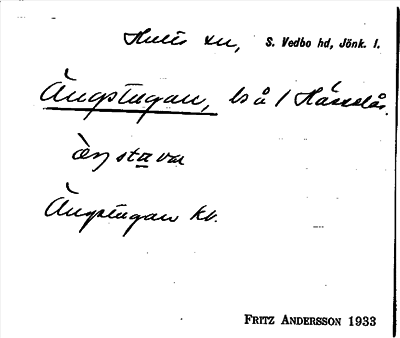 Hults sn, S. Vedbo hd, Jönk. l.
Ängstugan, ls å / Hässelås.
Ängstugan kv.
FRITZ ANDERSSON 1933